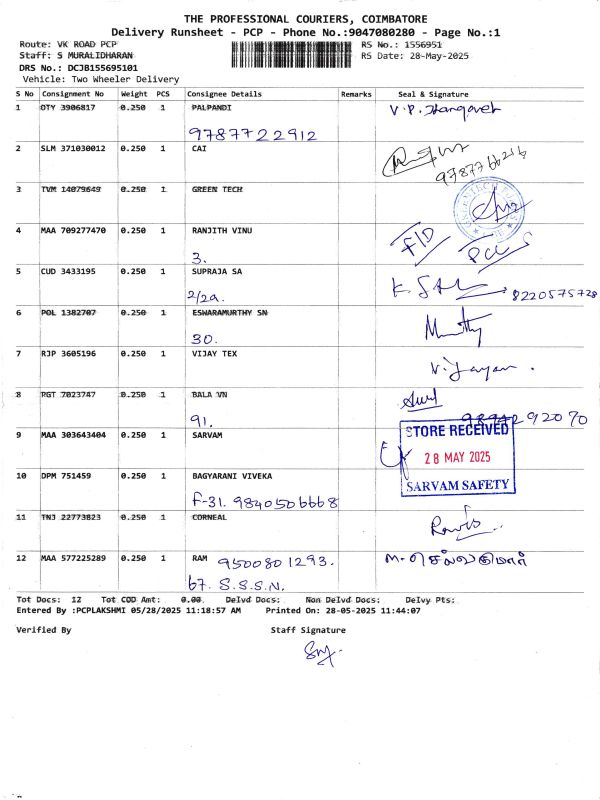 THE PROFESSIONAL COURIERS, COIMBATORE
Delivery Runsheet - PCP - Phone No.:9047080280 - Page No.:1
Route: VK ROAD PCP RS No.: 1556951
Staff: S MURALIDHARAN RS Date: 28-May-2025
DRS No.: DCJB155695101
Vehicle: Two Wheeler Delivery
S No Consignment No Weight PCS Consignee Details Remarks Seal & Signature
1 OTY 3906817 0.250 1 PALPANDI
9787722912
2 SLM 371030012 0.250 1 CAI
9787766216
3 TVM 14079649 0.250 1 GREEN TECH
4 MAA 709277470 0.250 1 RANJITH VINU
3.
5 CUD 3433195 0.250 1 SUPRAJA SA
2/2a. 8220575728
6 POL 1382707 0.250 1 ESWARAMURTHY SN
30. Murthy
7 RJP 3605196 0.250 1 VIJAY TEX
8 RGT 7023747 0.250 1 BALA VN
91.
9 MAA 303643404 0.250 1 SARVAM STORE RECEIVED
28 MAY 2025
SARVAM SAFETY
10 DPM 751459 0.250 1 BAGYARANI VIVEKA
F-31. 9840506668
11 TNJ 22773823 0.250 1 CORNEAL
12 MAA 577225289 0.250 1 RAM 9500801293.
67. S.S.S.N.
Tot Docs: 12 Tot COD Amt: 0.00 Delvd Docs: Non Delvd Docs: Delvy Pts:
Entered By :PCPLAKSHMI 05/28/2025 11:18:57 AM Printed On: 28-05-2025 11:44:07
Verified By Staff Signature